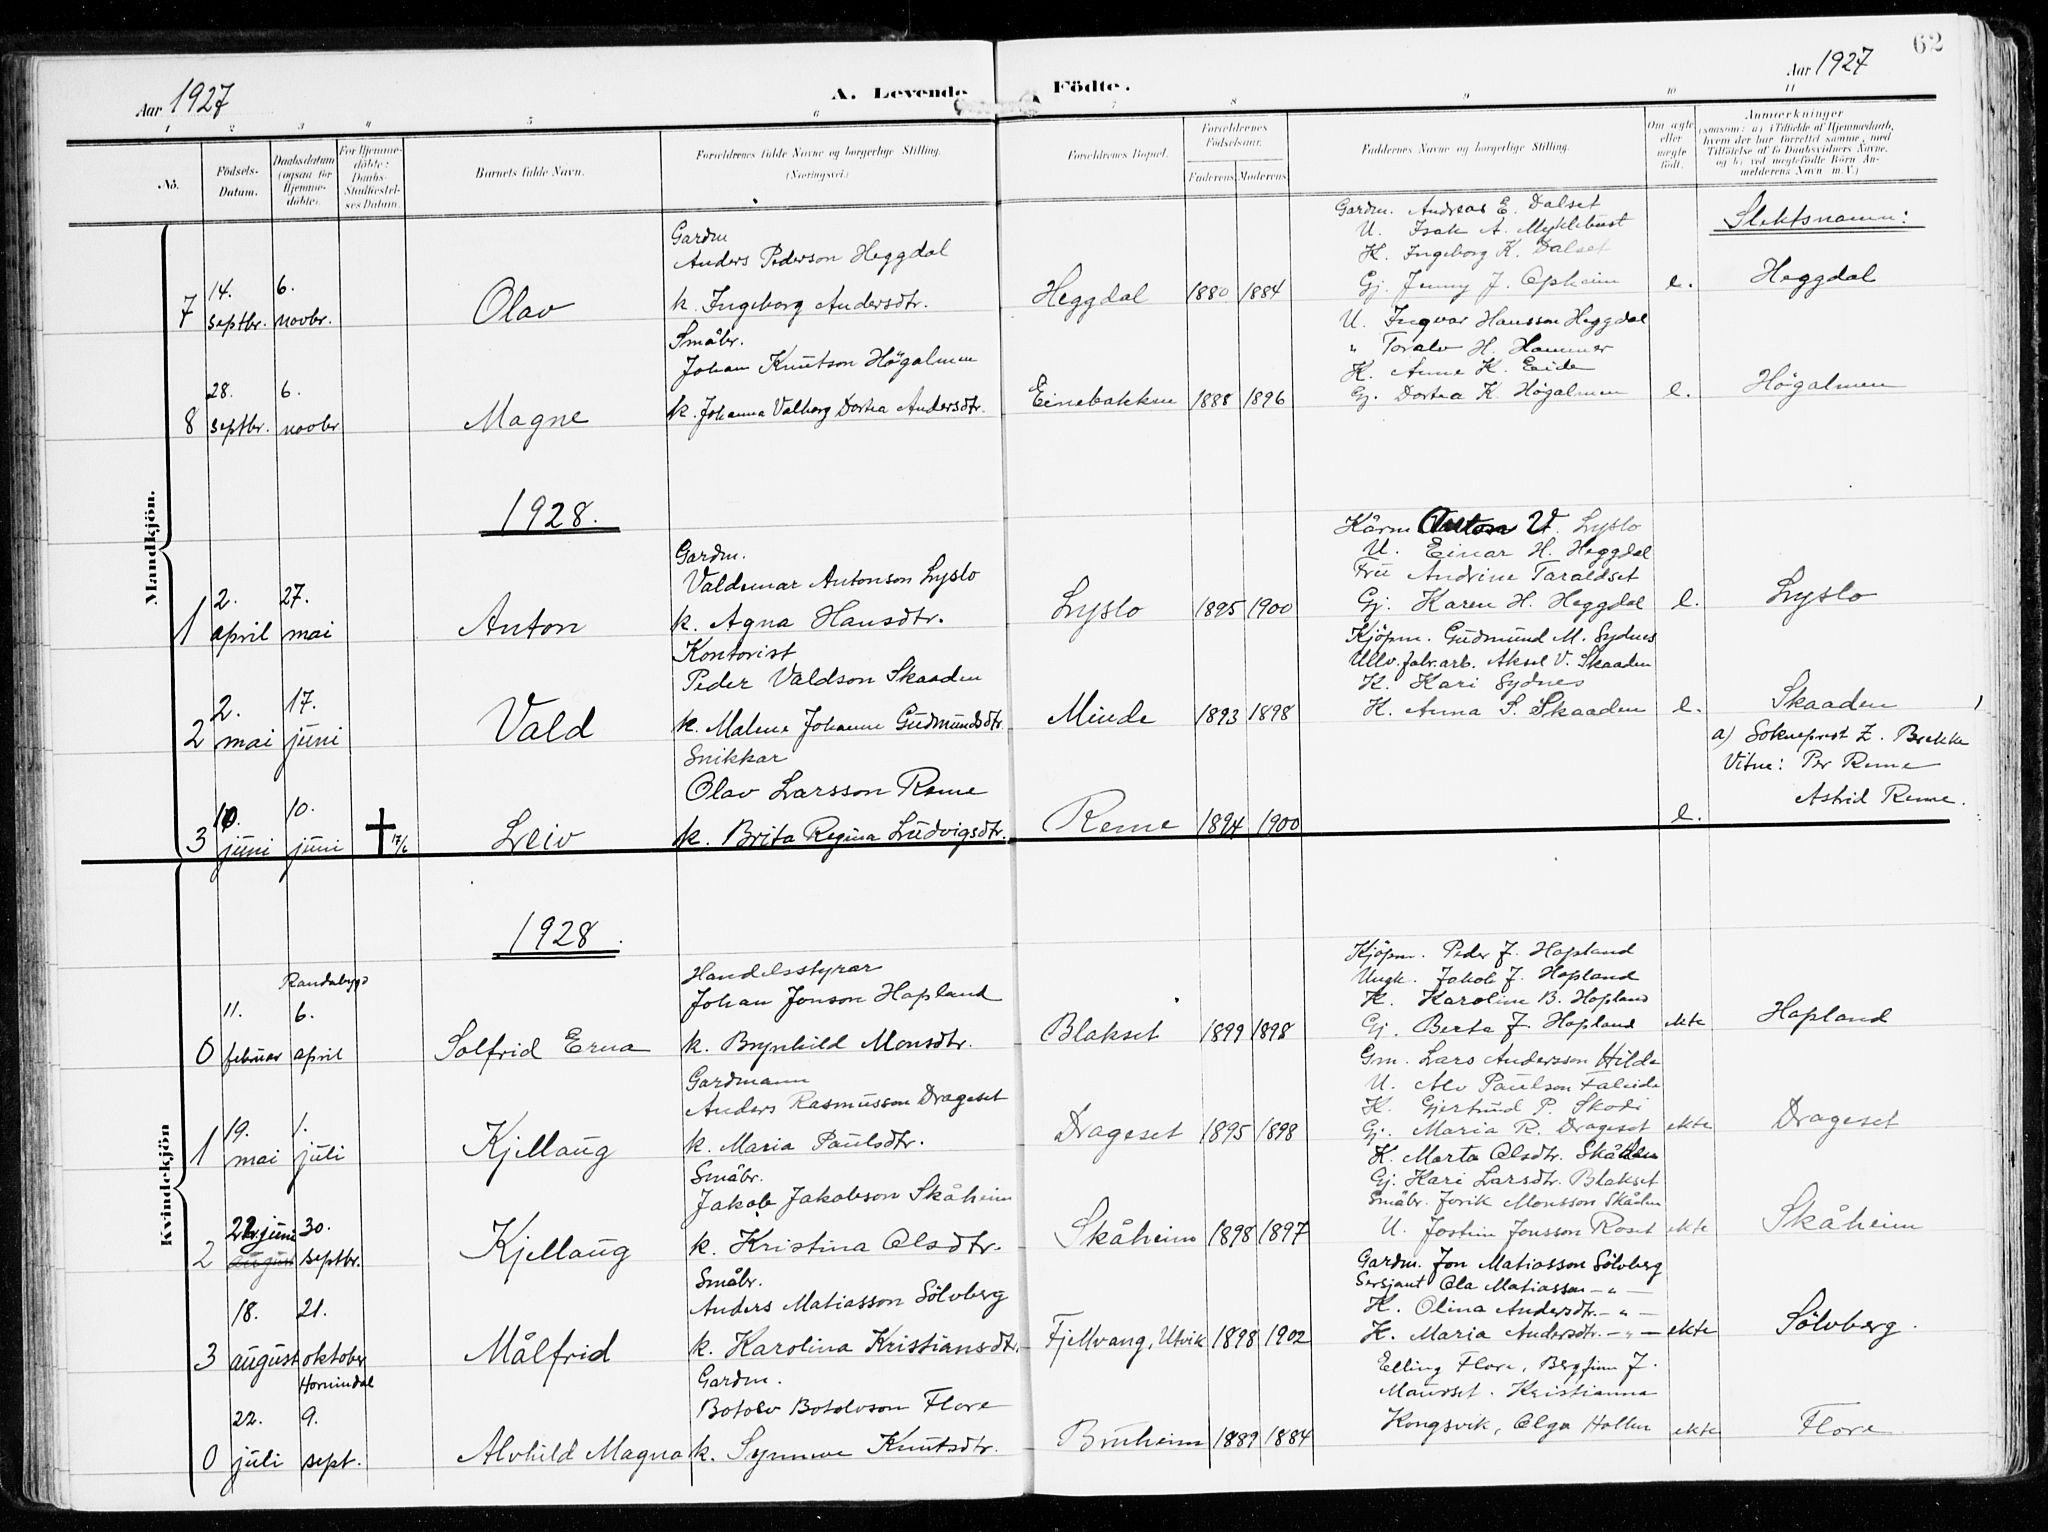 62
Aar 1927
A. Levende
Födte.
Aar 1927
1 2 3 4 5 6 7 8 9 10 11
No.
Födsels-
Datum.
Daabsdatum
(ogsaa for
Hjemme-
döbte).
For Hjemme-
döbte:
Daabs-
Stadfæstel-
ses Datum.
Barnets fulde Navn.
Forældrenes fulde Navne og borgerlige Stilling.
(Næringsvei.)
Forældrenes Bopæl.
Forældrenes
Födselsaar.
Faderens
Moderens
Faddernes Navne og borgerlige Stilling.
Om ægte
eller
uægte
födt.
Anmærkninger
(saasom: a) i Tilfælde af Hjemmedaab,
hvem der har forrettet samme, med
Tilföielse af to Daabsvidners Navne,
og b) ved uegtefödte Börn An-
melderens Navn m.V.)
Slektsnamn:
Mandkjön.
7
14.
septbr.
6.
novbr.
Olav
Gardm
Anders Pederson Heggdal
k. Ingeborg Andersdtr.
Heggdal
1880
1884
Gardm. Andreas E. Dalset
U. Isak A. Myklebust
K. Ingeborg K. Dalset
Gj. Jenny J. Opheim
e.
Heggdal
8
28.
septbr.
6.
novbr
Magne
Småbr.
Johan Knutson Högalmen
k. Johanna Valborg Dortea Andersdtr.
Einebakken
1888
1896
U. Ingvar Hansson Heggdal
" Toralv H. Hammer
K. Anne K. Eide
Gj. Dortea K. Högalmen
e.
Högalmen
1928.
1
2.
april
27.
mai
Anton
Gardm.
Valdemar Antonson Lyslo
k. Agna Hansdtr.
Lyslo
1895
1900
Kårm Anton V. Lyslo
U. Einar H. Heggdal
Fru Andrine Taraldset
Gj. Karen H. Heggdal
e.
Lyslo
2
2.
mai
17.
juni
Vald
Kontorist
Peder Valdson Skaaden
k. Malene Johanne Gudmundsdtr.
Minde
1893
1898
Kjöpm. Gudmund M. Sydnes
Ullv.fabr.arb. Aksel V. Skaaden
K. Kari Sydnes
K. Anna S. Skaaden
e.
Skaaden
3
10.
juni
10.
juni
17/6
Leiv
Snikkar
Olav Larsson Reme
k. Brita Regina Ludvigsdtr.
Reme
1894
1900
e.
a) Sokneprest Z. Brekke
Vitne: Per Reme
Astrid Reme.
Kvindekjön
1928.
0
11.
februar
Randabygd
6.
april
Solfrid Erna
Handelsstyrar
Johan Jonson Hopland
k. Brynhild Monsdtr.
Blakset
1899
1898
Kjöpm. Peder J. Hopland
Ungk. Jakob J. Hopland
K. Karoline B. Hopland
Gj. Berta J. Hopland
ekte
Hopland
1
19.
mai
1.
juli
Kjellaug
Gardmann
Anders Rasmusson Drageset
k. Maria Paulsdtr.
Drageset
1895
1898
Gm. Lars Andersson Hilde
U. Alv Paulson Faleide
K. Gjertrud P. Skodi
Gj. Maria R. Drageset
ekte
Drageset
2
juni
august
30.
septbr.
Kjellaug
Småbr.
Jakob Jakobson Skåheim
k. Kristina Olsdtr.
Skåheim
1898
1897
K. Marta Olsdtr. Skåden
Gj. Kari Larsdtr. Blakset
Småbr. Jorik Monsson Skåden
U. Jostein Jonsson Roset
ekte
Skåheim
3
18.
august
21.
oktober
Målfrid
Småbr.
Anders Matiasson Sölvberg
k. Karolina Kristiansdtr.
Fjellvang, Utvik
1898
1902
Gardm. Jon Matiasson Sölvberg
Sersjant Ola Matiasson — " —
K. Olina Andersdtr. — " —
K. Maria Andersdtr. — " —
ekte
Sölvberg.
0
22.
juli
Hornindal
9.
sept.
Alvhild Magna
Gardm.
Botolv Botolvson Flore
k. Synnøve Knutsdtr.
Bruheim
1889
1884
Elling Flore, Bergfinn J.
Maurset. Kristianna
Kongsvik, Olga Hollen
ekte
Flore